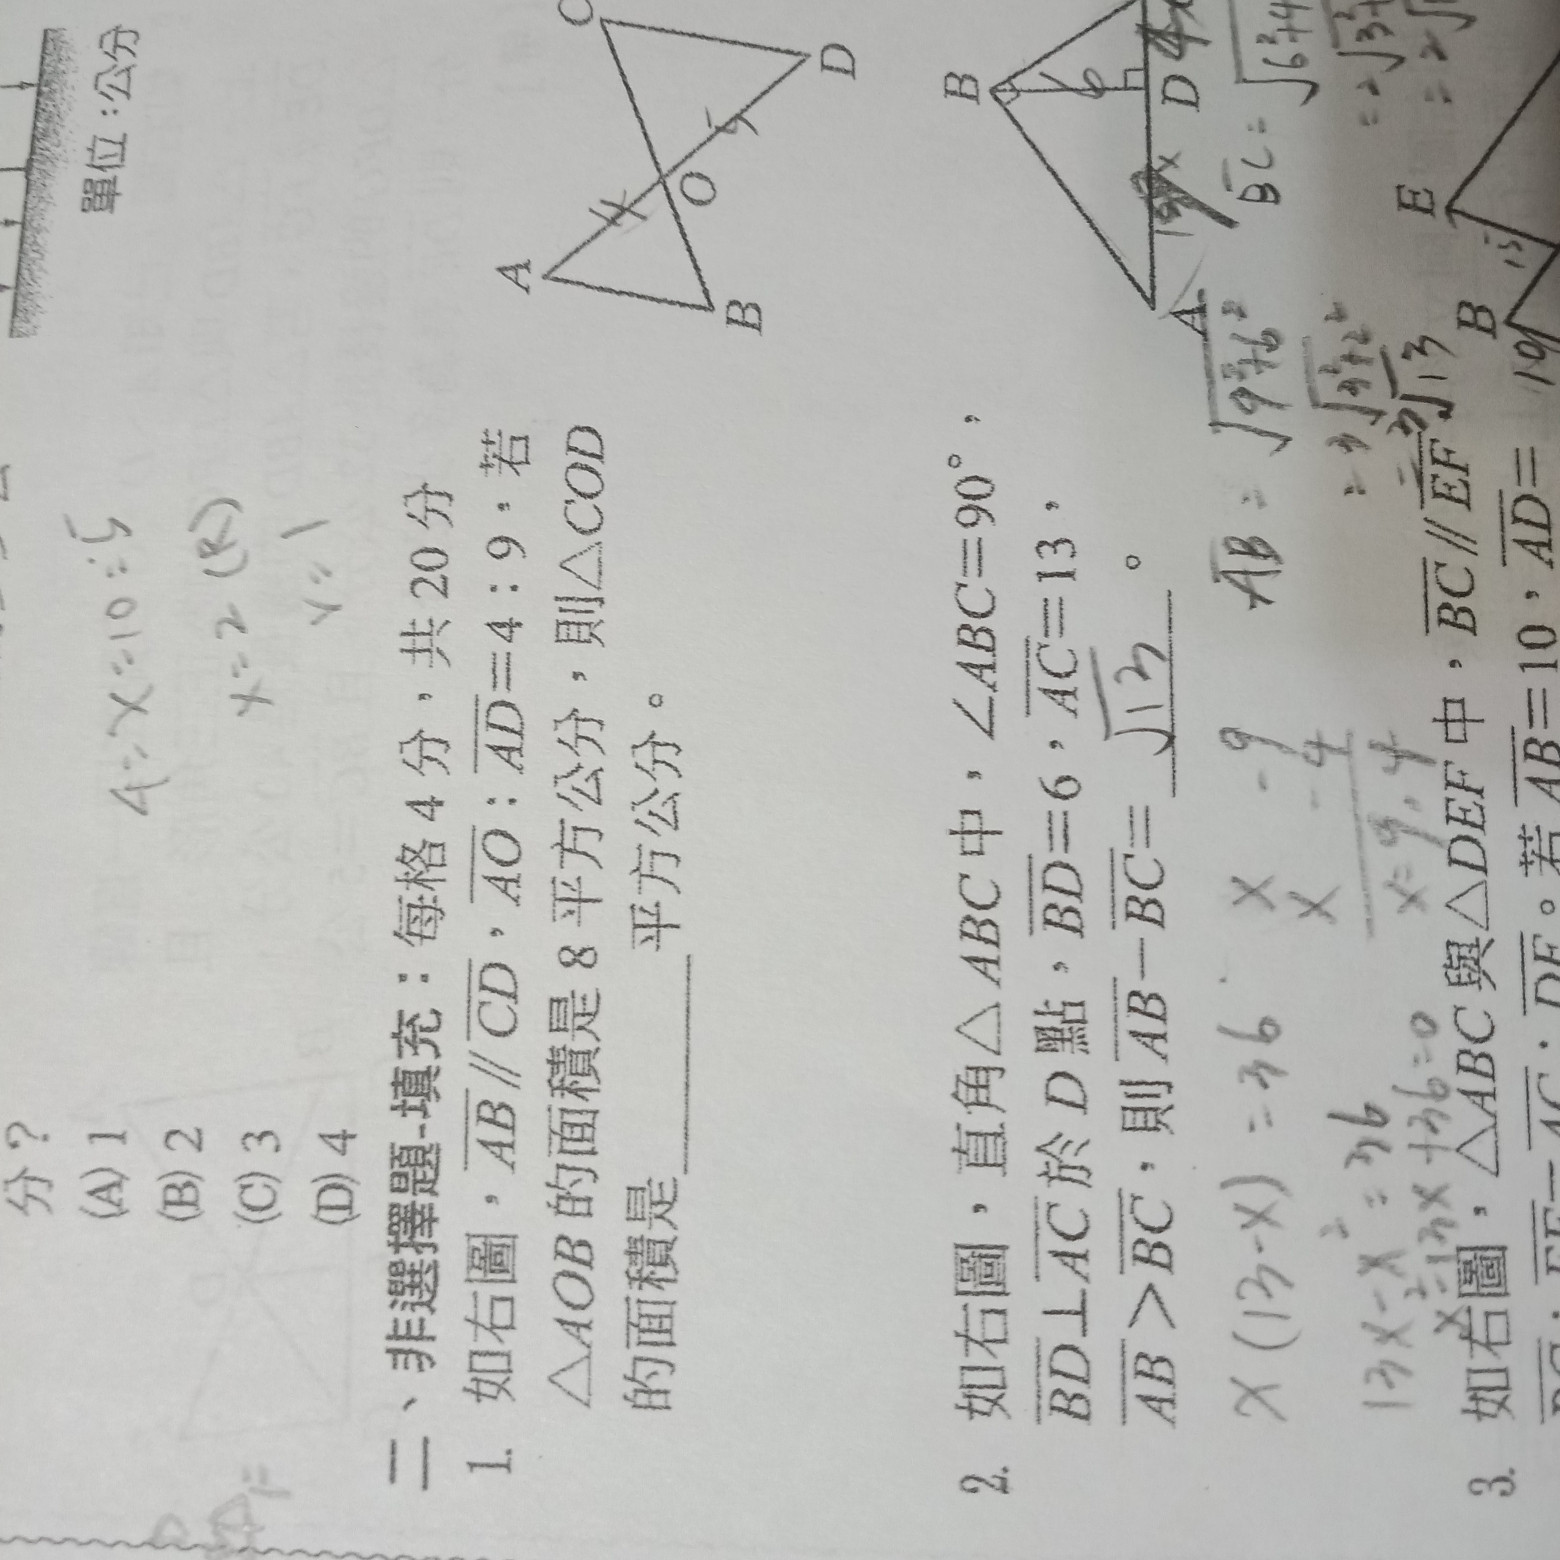 單位：公分
分？
(A) 1
(B) 2
(C) 3
(D) 4
4:x=10:5
x=2 (R)
二、非選擇題-填充：每格 4 分，共 20 分
1. 如右圖，AB // CD，AO：AD=4：9，若
△AOB 的面積是 8 平方公分，則△COD
的面積是 平方公分。
A
B
C
D
O
4
5
2. 如右圖，直角△ABC 中，∠ABC=90°，
BD⊥AC 於 D 點，BD=6，AC=13，
AB＞BC，則 AB－BC= √13 。
B
A
D
6
x
x(13-x)=36
13x-x²=36
x²-13x+36=0
x -9
x -4
x=9,4
AB=√9²+6²
=3√3²+2²
=3√13
BC=√6²+4
3. 如右圖，△ABC 與△DEF 中，BC // EF
。若 AB=10，AD=
E
B
15
10